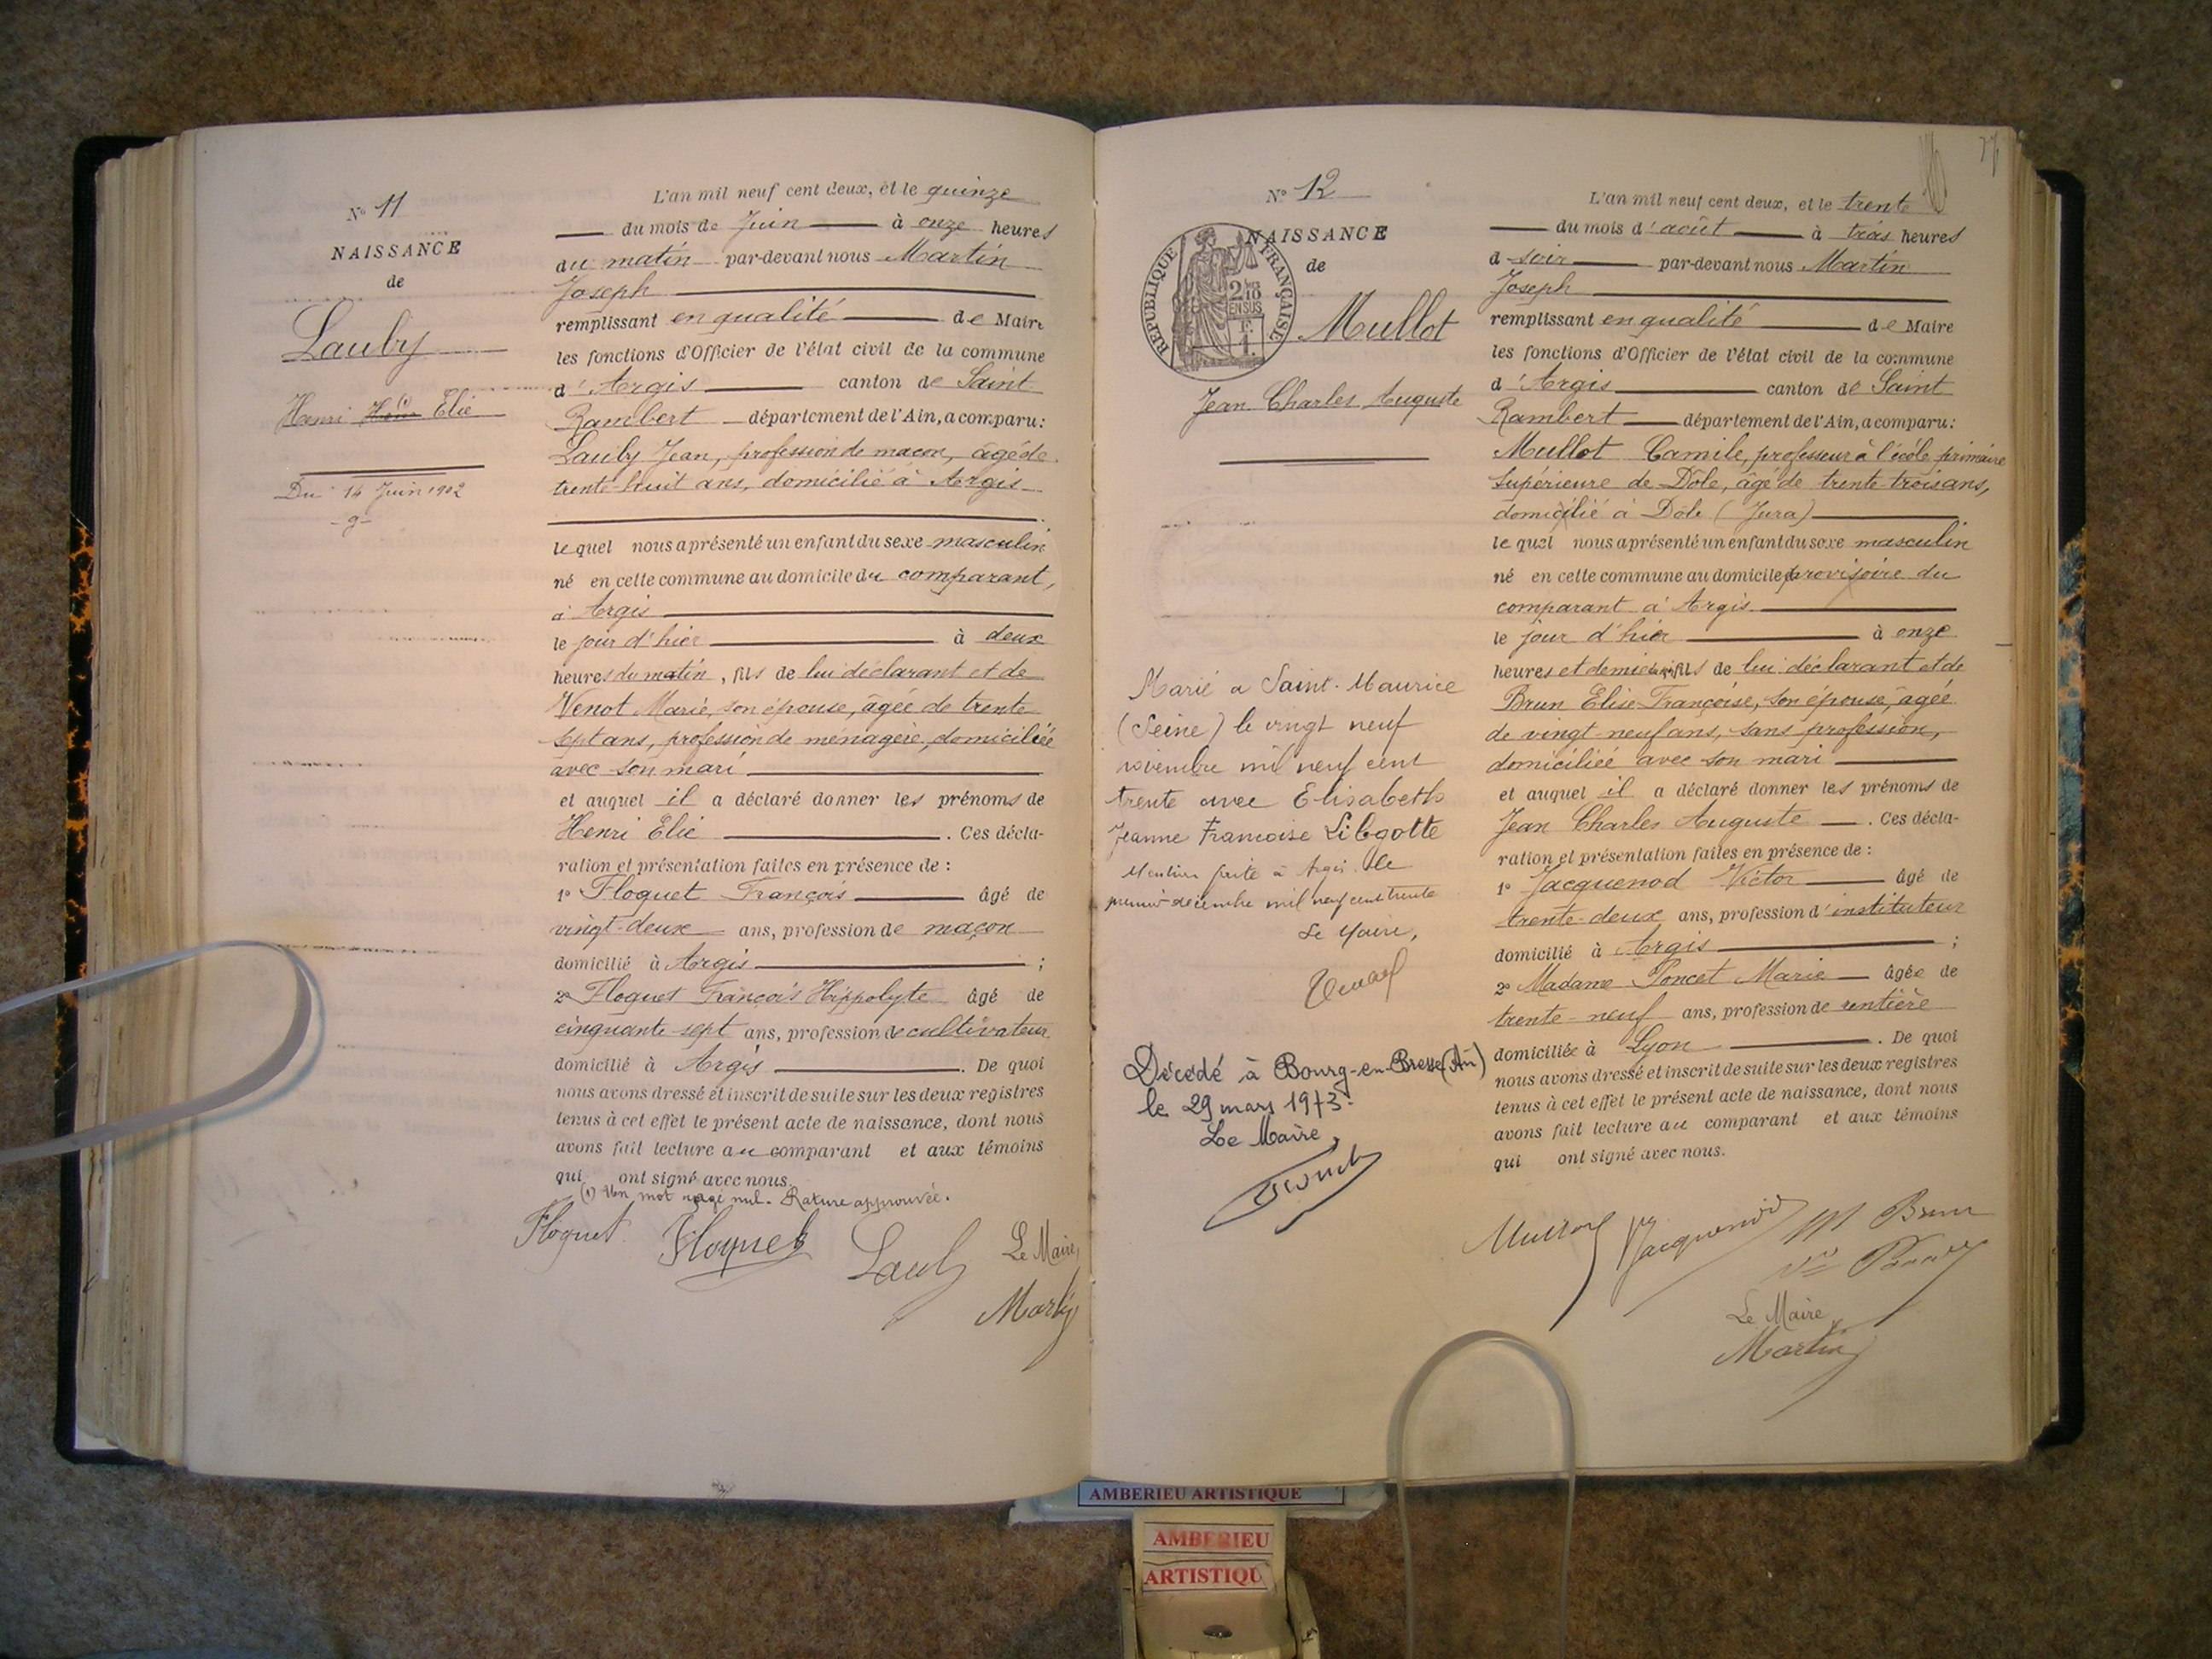 N° 11
NAISSANCE
de
Lauby
Henri Elie
Du 14 Juin 1902
-9-
L'an mil neuf cent deux, et le quinze
du mois de Juin à onze heures
du matin par-devant nous Martin
Joseph
remplissant en qualité de Maire
les fonctions d'Officier de l'état civil de la commune
d'Argis canton de Saint
Rambert département de l'Ain, a comparu:
Lauby Jean, profession de maçon, âgé de
trente-huit ans, domicilié à Argis
lequel nous a présenté un enfant du sexe masculin
né en cette commune au domicile du comparant,
à Argis
le jour d'hier à deux
heures du matin, fils de lui déclarant et de
Venot Marie, son épouse, âgée de trente
sept ans, profession de ménagère, domiciliée
avec son mari
et auquel il a déclaré donner les prénoms de
Henri Elie. Ces décla-
ration et présentation faites en présence de :
1° Floquet François âgé de
vingt-deux ans, profession de maçon
domicilié à Argis ;
2° Floquet François Hippolyte âgé de
cinquante-sept ans, profession de cultivateur
domicilié à Argis. De quoi
nous avons dressé et inscrit de suite sur les deux registres
tenus à cet effet le présent acte de naissance, dont nous
avons fait lecture au comparant et aux témoins
qui ont signé avec nous.
(1) Un mot rayé nul. Rature approuvée.
Floquet Floquet Lauby Le Maire,
Martin
N° 12
NAISSANCE
de
RÉPUBLIQUE FRANÇAISE
Mullot
Jean Charles Auguste
Marié à Saint-Maurice
(Seine) le vingt neuf
novembre mil neuf cent
trente avec Elisabeth
Jeanne Françoise Libgotte
Mention faite à Argis le
premier décembre mil neuf cent trente
Le Maire,
Décédé à Bourg-en-Bresse (Ain)
le 29 mars 1973.
Le Maire,
77
L'an mil neuf cent deux, et le trente
du mois d'août à trois heures
d soir par-devant nous Martin
Joseph
remplissant en qualité de Maire
les fonctions d'Officier de l'état civil de la commune
d'Argis canton de Saint
Rambert département de l'Ain, a comparu:
Mullot Camile, professeur à l'école primaire
supérieure de Dôle, âgé de trente-trois ans,
domicilié à Dôle (Jura)
lequel nous a présenté un enfant du sexe masculin
né en cette commune au domicile provisoire du
comparant à Argis
le jour d'hier à onze
heures et demie fils de lui déclarant et de
Brun Elise Françoise, son épouse, âgée
de vingt-neuf ans, sans profession,
domiciliée avec son mari
et auquel il a déclaré donner les prénoms de
Jean Charles Auguste. Ces décla-
ration et présentation faites en présence de :
1° Jacquenod Victor âgé de
trente-deux ans, profession d'instituteur
domicilié à Argis ;
2° Madame Poncet Marie âgée de
trente-neuf ans, profession de rentière
domiciliée à Lyon. De quoi
nous avons dressé et inscrit de suite sur les deux registres
tenus à cet effet le présent acte de naissance, dont nous
avons fait lecture au comparant et aux témoins
qui ont signé avec nous.
Mullot Jacquenod M Brun
Le Maire,
Martin
AMBERIEU ARTISTIQUE
AMBERIEU
ARTISTIQU